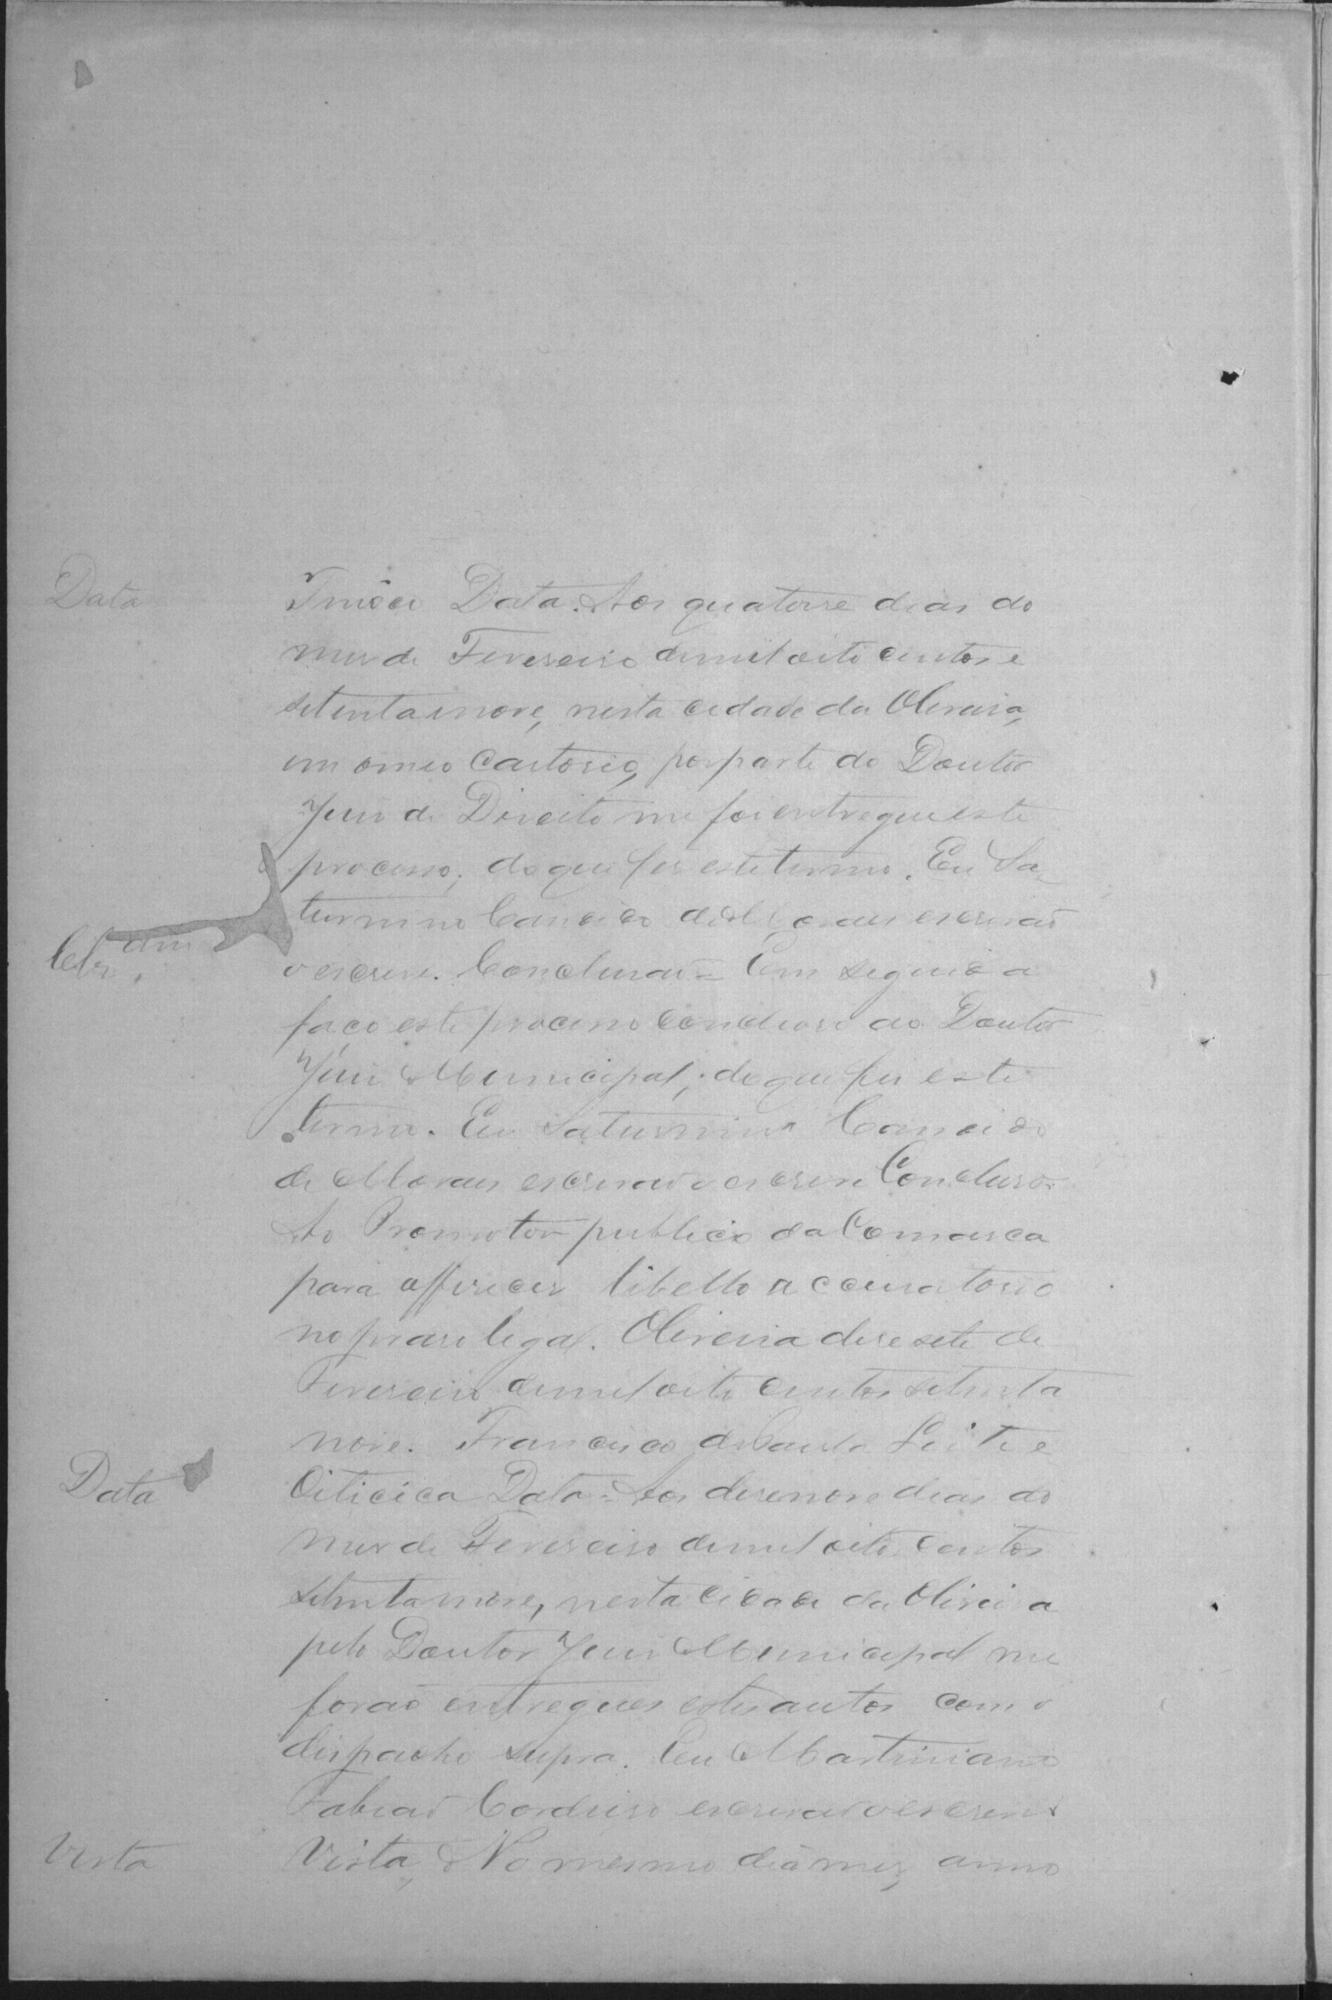 Data
Data. Aos quatorse dias do
mes de Fevereiro de mil oito centos e
setenta e nove, nesta cidade da Oliveira,
em o meo Cartorio, por parte do Doutor
Juis de Direito me foi entregue este
processo; do que fis este termo. Eu Sa-
turnino Candido de Moraes escrivão
Cls.am
o escrevi. Conclusão = Em seguida
faço este processo concluso ao Doutor
Juis Municipal; do que fis este
termo. Eu Saturnino Candido
de Moraes escrivão o escrevi Conclusos.
Ao Promotor publico da Comarca
para offerecer libello accusatorio
no praso legal. Oliveira desesete de
Fevereiro de mil oito centos setenta
nove. Francisco de Paula Leite e
Data
Oiticica Data = Aos desenove dias do
mes de Fevereiro de mil oito centos
setenta nove, nesta cidade da Oliveira
pelo Doutor Juis Municipal me
forão entregues estes autos com o
dispacho supra. Eu Martiniano
Fabião Cordeiro escrivão o escrevi
Vista
Vista, No mesmo dia mes, anno